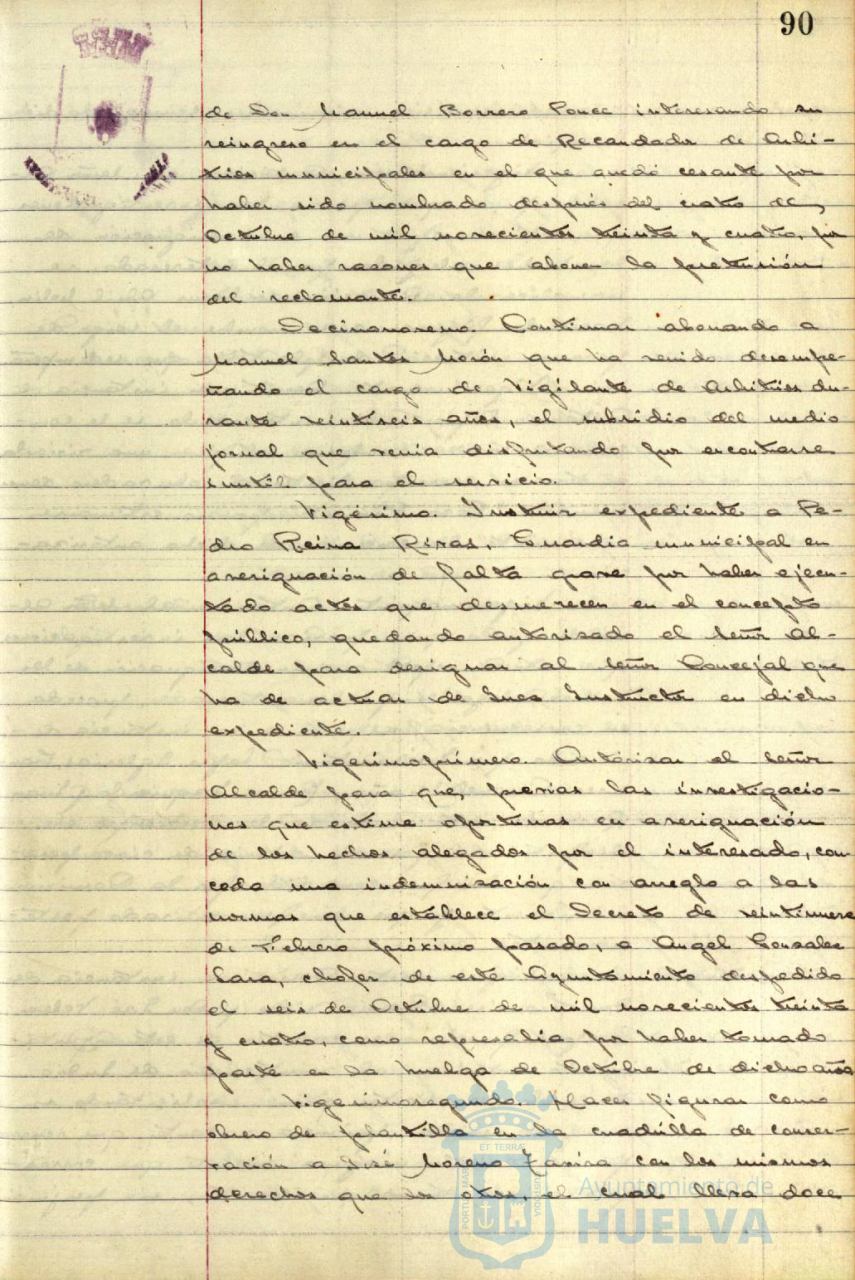 90
de Don Manuel Borrero Ponce interesando su
reingreso en el cargo de Recaudador de Arbi-
trios municipales en el que quedó cesante por
haber sido nombrado después del cuatro de
Octubre de mil novecientos treinta y cuatro, por
no haber razones que abonen la pretensión
del reclamante.
Decimonoveno. Continuar abonando a
Manuel Santos Morón que ha venido desempe-
ñando el cargo de Vigilante de Arbitrios du-
rante veintiseis años, el subsidio del medio
jornal que venia disfrutando por encontrarse
inutil para el servicio.
Vigésimo. Instruir expediente a Pe-
dro Reina Rivas, Guardia municipal en
averiguación de falta grave por haber ejecu-
tado actos que desmerecen en el concepto
público, quedando autorizado el Señor Al-
calde para designar al Señor Concejal que
ha de actuar de Juez Instructor en dicho
expediente.
Vigesimoprimero. Autorizar el Señor
Alcalde para que, previas las investigacio-
nes que estime oportunas en averiguación
de los hechos alegados por el interesado, con-
ceda una indemnización con arreglo a las
normas que establece el Decreto de veintinueve
de Febrero próximo pasado, a Angel Gonzalez
Lara, chofer de este Ayuntamiento despedido
el seis de Octubre de mil novecientos treinta
y cuatro, como represalia por haber tomado
parte en la huelga de Octubre de dicho año
Vigesimosegundo. Hacer figurar como
obrero de plantilla en la cuadrilla de conser-
vación a José Moreno con los mismos
derechos que los otros, el cual lleva doce
Ayuntamiento de
HUELVA